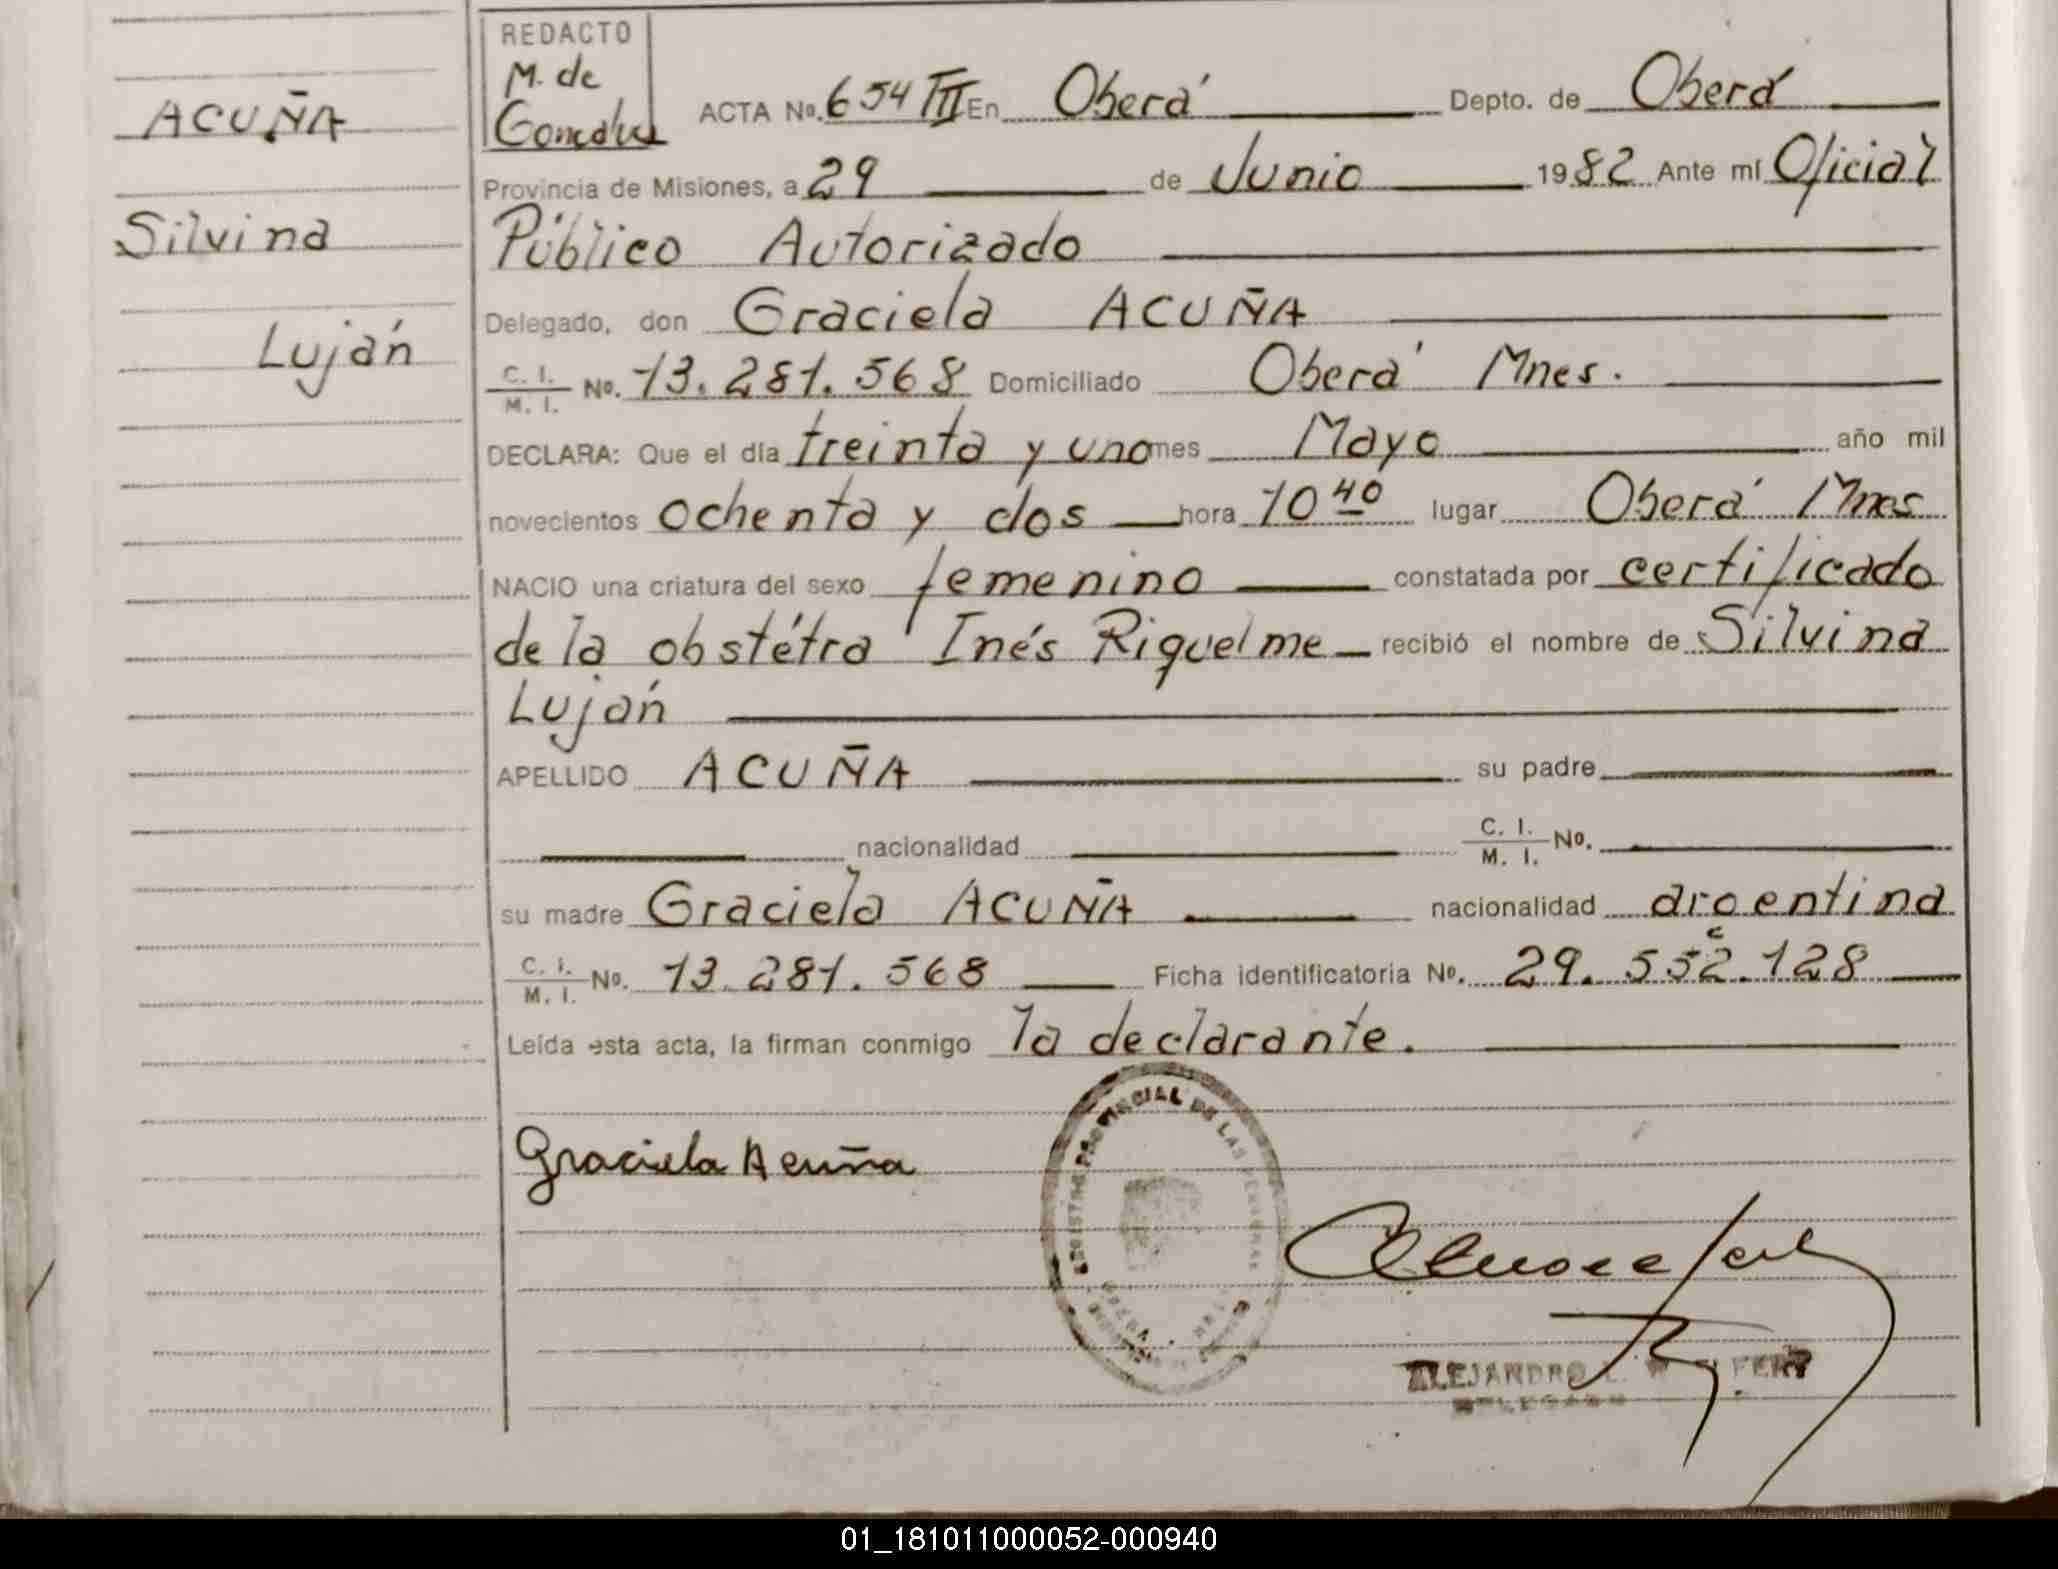 ACUÑA
Silvina
Luján
REDACTO
M. de
ACTA No. 654 III En Oberá Depto. de Oberá
Provincia de Misiones, a 29 de Junio 1982 Ante mí Oficial
Público Autorizado
Delegado, don Graciela ACUÑA
C. I. / M. I. No. 13.281.568 Domiciliado Oberá Mnes.
DECLARA: Que el día treinta y uno mes Mayo año mil
novecientos ochenta y dos hora 10 40 lugar Oberá Mnes
NACIO una criatura del sexo femenino constatada por certificado
de la obstétra Inés Riquelme recibió el nombre de Silvina
Luján
APELLIDO ACUÑA su padre
nacionalidad C. I. / M. I. No.
su madre Graciela ACUÑA nacionalidad argentina
C. I. / M. I. No. 13.281.568 Ficha identificatoria No. 29.552.128
Leída esta acta, la firman conmigo la declarante.
Graciela Acuña
PROVINCIAL DE LAS PERSONAS
ALEJANDRO
DELEGADO
01_181011000052-000940